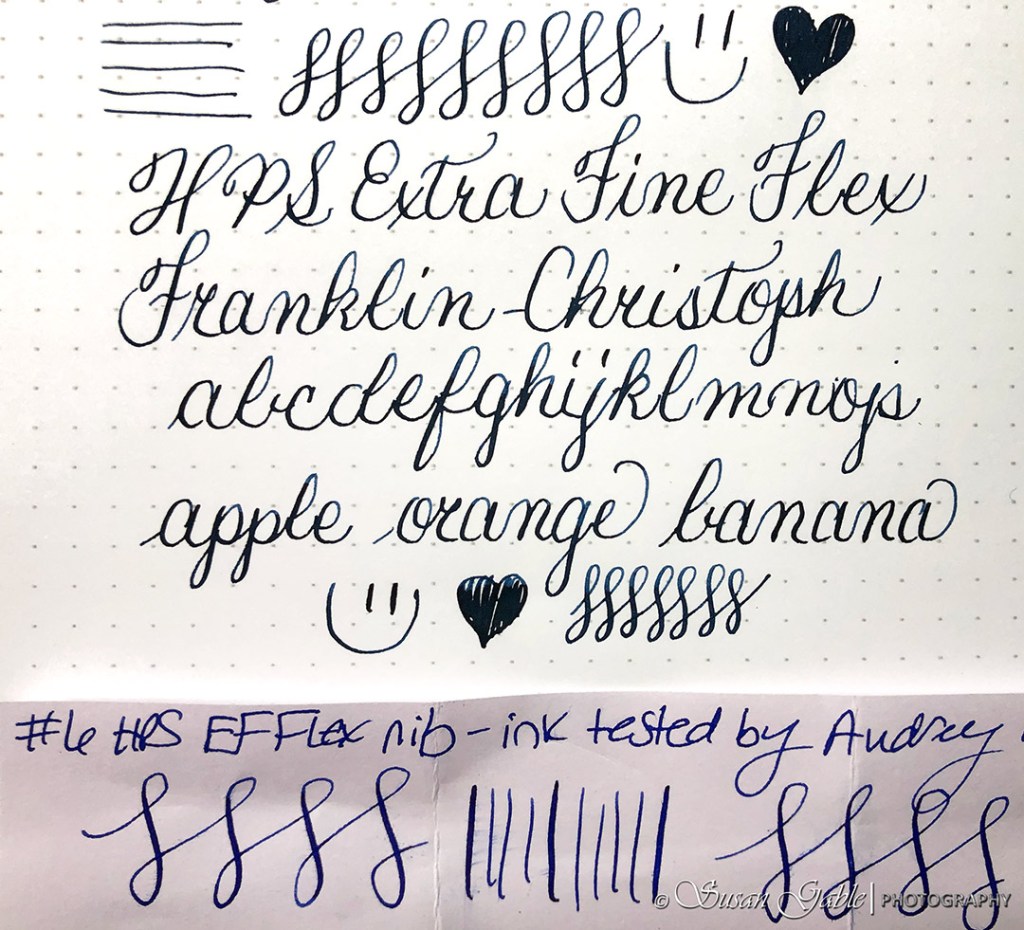 HPS Extra Fine Flex
Franklin-Christoph
abcdefghijklmnojs
apple orange banana
#6 HPS EF Flex nib-ink tested by Audrey
© Susan Gable | PHOTOGRAPHY